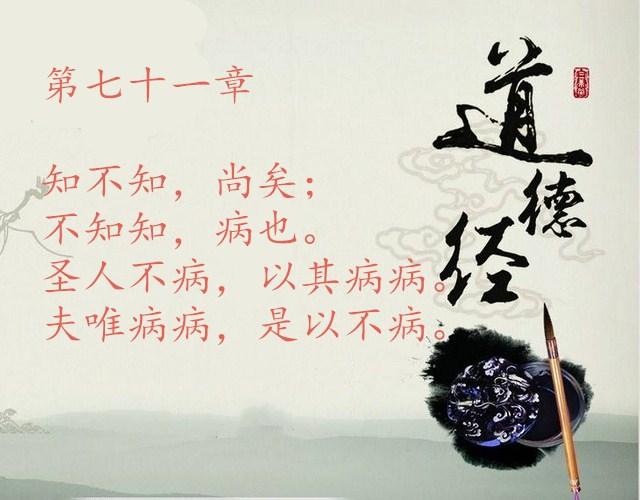 第七十一章
知不知，尚矣；
不知知，病也。
圣人不病，以其病病。
夫唯病病，是以不病。
道德经